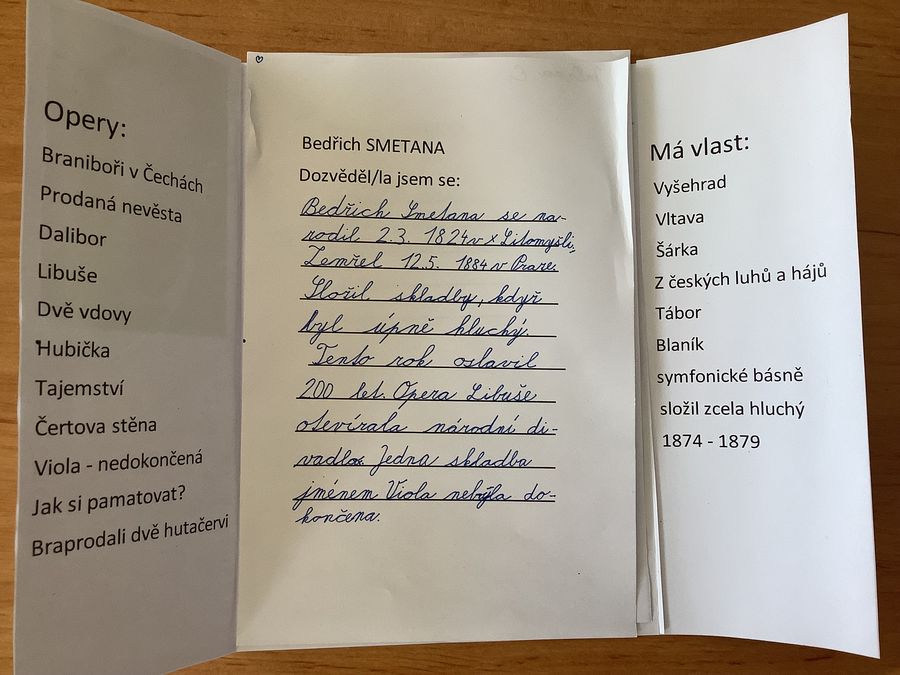 Opery:
Braniboři v Čechách
Prodaná nevěsta
Dalibor
Libuše
Dvě vdovy
Hubička
Tajemství
Čertova stěna
Viola - nedokončená
Jak si pamatovat?
Braprodali dvě hutačervi
Bedřich SMETANA
Dozvěděl/la jsem se:
Bedřich Smetana se na-
rodil 2.3. 1824 v x Litomyšli,
Zemřel 12.5. 1884 v Praze.
Složil skladby, když
byl úpně hluchý.
Tento rok oslavil
200 let. Opera Libuše
otevírala národní di-
vadlo. Jedna skladba
jménem Viola nebyla do-
končena.
Má vlast:
Vyšehrad
Vltava
Šárka
Z českých luhů a hájů
Tábor
Blaník
symfonické básně
složil zcela hluchý
1874 - 1879